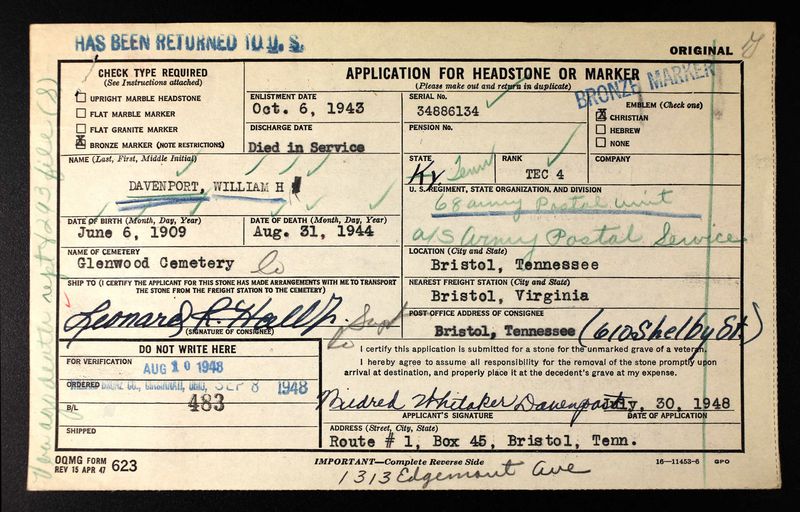 HAS BEEN RETURNED TO U. S.
ORIGINAL
CHECK TYPE REQUIRED
(See Instructions attached)
UPRIGHT MARBLE HEADSTONE
FLAT MARBLE MARKER
FLAT GRANITE MARKER
X BRONZE MARKER (NOTE RESTRICTIONS)
APPLICATION FOR HEADSTONE OR MARKER
(Please make out and return in duplicate)
BRONZE MARKER
ENLISTMENT DATE
Oct. 6, 1943
DISCHARGE DATE
Died in Service
SERIAL No.
34886134
PENSION No.
EMBLEM (Check one)
X CHRISTIAN
HEBREW
NONE
NAME (Last, First, Middle Initial)
DAVENPORT, WILLIAM H
STATE
Ky Tenn
RANK
TEC 4
COMPANY
U. S. REGIMENT, STATE ORGANIZATION, AND DIVISION
68 army Postal unit
a/s Army Postal Service
DATE OF BIRTH (Month, Day, Year)
June 6, 1909
DATE OF DEATH (Month, Day, Year)
Aug. 31, 1944
NAME OF CEMETERY
Glenwood Cemetery Co
LOCATION (City and State)
Bristol, Tennessee
SHIP TO (I CERTIFY THE APPLICANT FOR THIS STONE HAS MADE ARRANGEMENTS WITH ME TO TRANSPORT
THE STONE FROM THE FREIGHT STATION TO THE CEMETERY)
NEAREST FREIGHT STATION (City and State)
Bristol, Virginia
Leonard R Hall Jr. Supt
(SIGNATURE OF CONSIGNEE)
POST OFFICE ADDRESS OF CONSIGNEE
Bristol, Tennessee (610 Shelby St.)
DO NOT WRITE HERE
FOR VERIFICATION
AUG 10 1948
ORDERED
BRONZ CO., CINCINNATI, OHIO, SEP 8 1948
B/L
483
SHIPPED
I certify this application is submitted for a stone for the unmarked grave of a veteran.
I hereby agree to assume all responsibility for the removal of the stone promptly upon
arrival at destination, and properly place it at the decedent's grave at my expense.
Mildred Whitaker Davenport July, 30, 1948
APPLICANT'S SIGNATURE
DATE OF APPLICATION
ADDRESS (Street, City, State)
Route # 1, Box 45, Bristol, Tenn.
OQMG FORM
REV 15 APR 47 623
IMPORTANT—Complete Reverse Side
16—11453-6 GPO
1313 Edgemont Ave